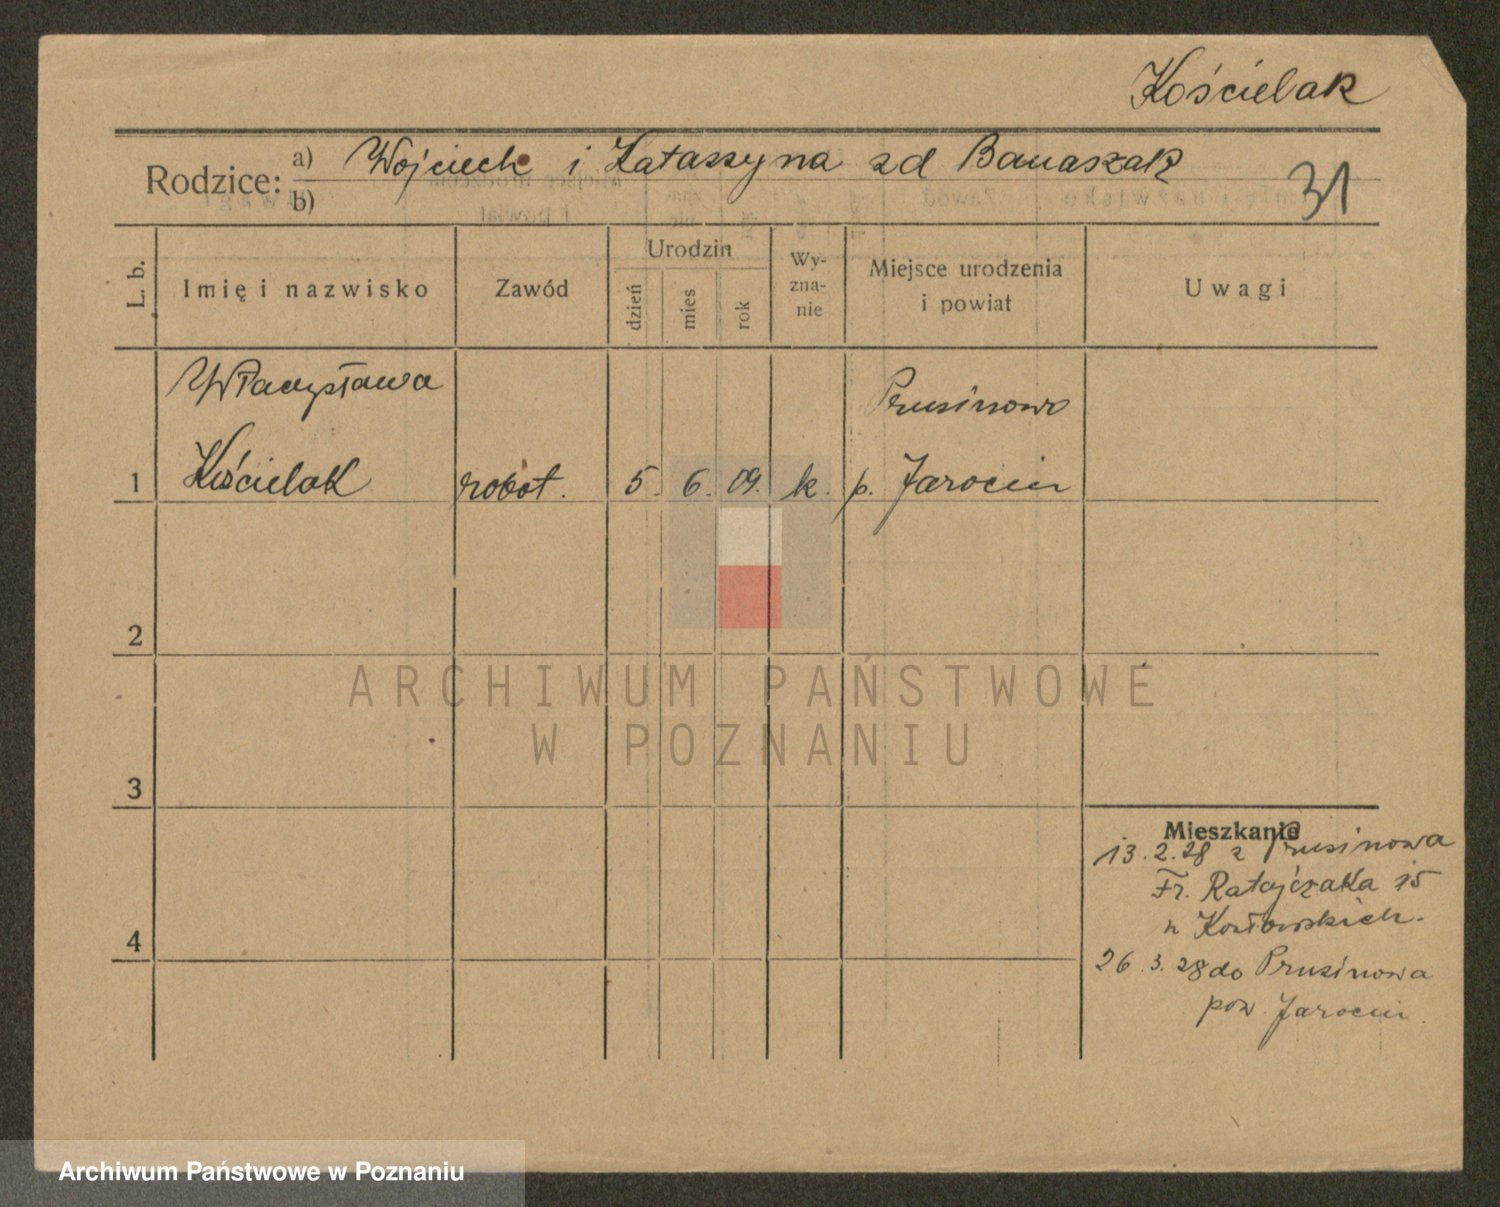 Kościelak
Rodzice: a) Wojciech i Katarzyna zd Banaszak
b)
31
L. b. Imię i nazwisko Zawód Urodzin dzień mies rok Wy-zna-nie Miejsce urodzenia i powiat Uwagi
Władysława Prusinowo
1 Kościelak robot. 5. 6. 09. k. p. Jarocin
2
3
4
Mieszkanie
13.2.28 z Prusinowa
Fr. Ratajczaka 15
u Kozłowskich.
26.3.28 do Prusinowa
pow. Jarocin.
ARCHIWUM PAŃSTWOWE
W POZNANIU
Archiwum Państwowe w Poznaniu